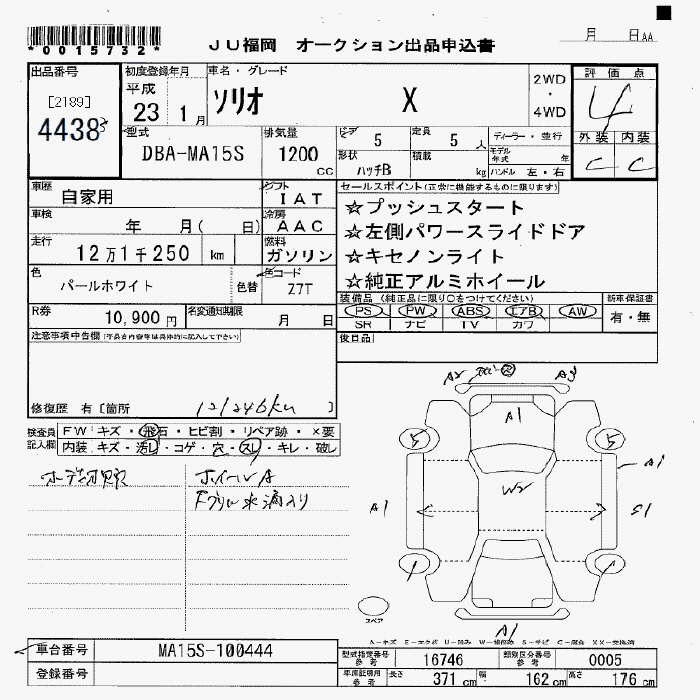 *0015732*
JU福岡 オークション出品申込書
月 日AA
出品番号
[2189]
4438
初度登録年月
平成
23 1月
車名・グレード
ソリオ X
2WD
・
4WD
評価点
4
外装 内装
C C
型式
DBA-MA15S
排気量
1200
cc
ドア
5
定員
5人
ディーラー・並行
形状
ハッチB
積載
kg
モデル年式 年
ハンドル 左・右
車歴
自家用
シフト
IAT
車検
年 月( 日)
冷房
AAC
走行
12万1千250 km
燃料
ガソリン
色
パールホワイト
色替
色コード
Z7T
セールスポイント(正常に機能するものに限ります)
☆プッシュスタート
☆左側パワースライドドア
☆キセノンライト
☆純正アルミホイール
装備品(純正品に限り○をつけてください)
新車保証書
PS PW ABS エアB AW
有・無
SR ナビ TV カワ
R券
10,900 円
名変通知期限
月 日
後日品
注意事項申告欄
修復歴 有〔箇所 〕
121246km
検査員記入欄
FW キズ・飛石・ヒビ割・リペア跡・×要
内装 キズ・汚レ・コゲ・穴・スレ・キレ・破レ
ホイールA
A2 A3
A1
5 5
A1
W2
A1
1 1
A1
スペア
車台番号
MA15S-100444
登録番号
型式指定番号
参考
16746
類別区分番号
参考
0005
車庫証明用
参考
長さ
371 cm
幅
162 cm
高さ
176 cm